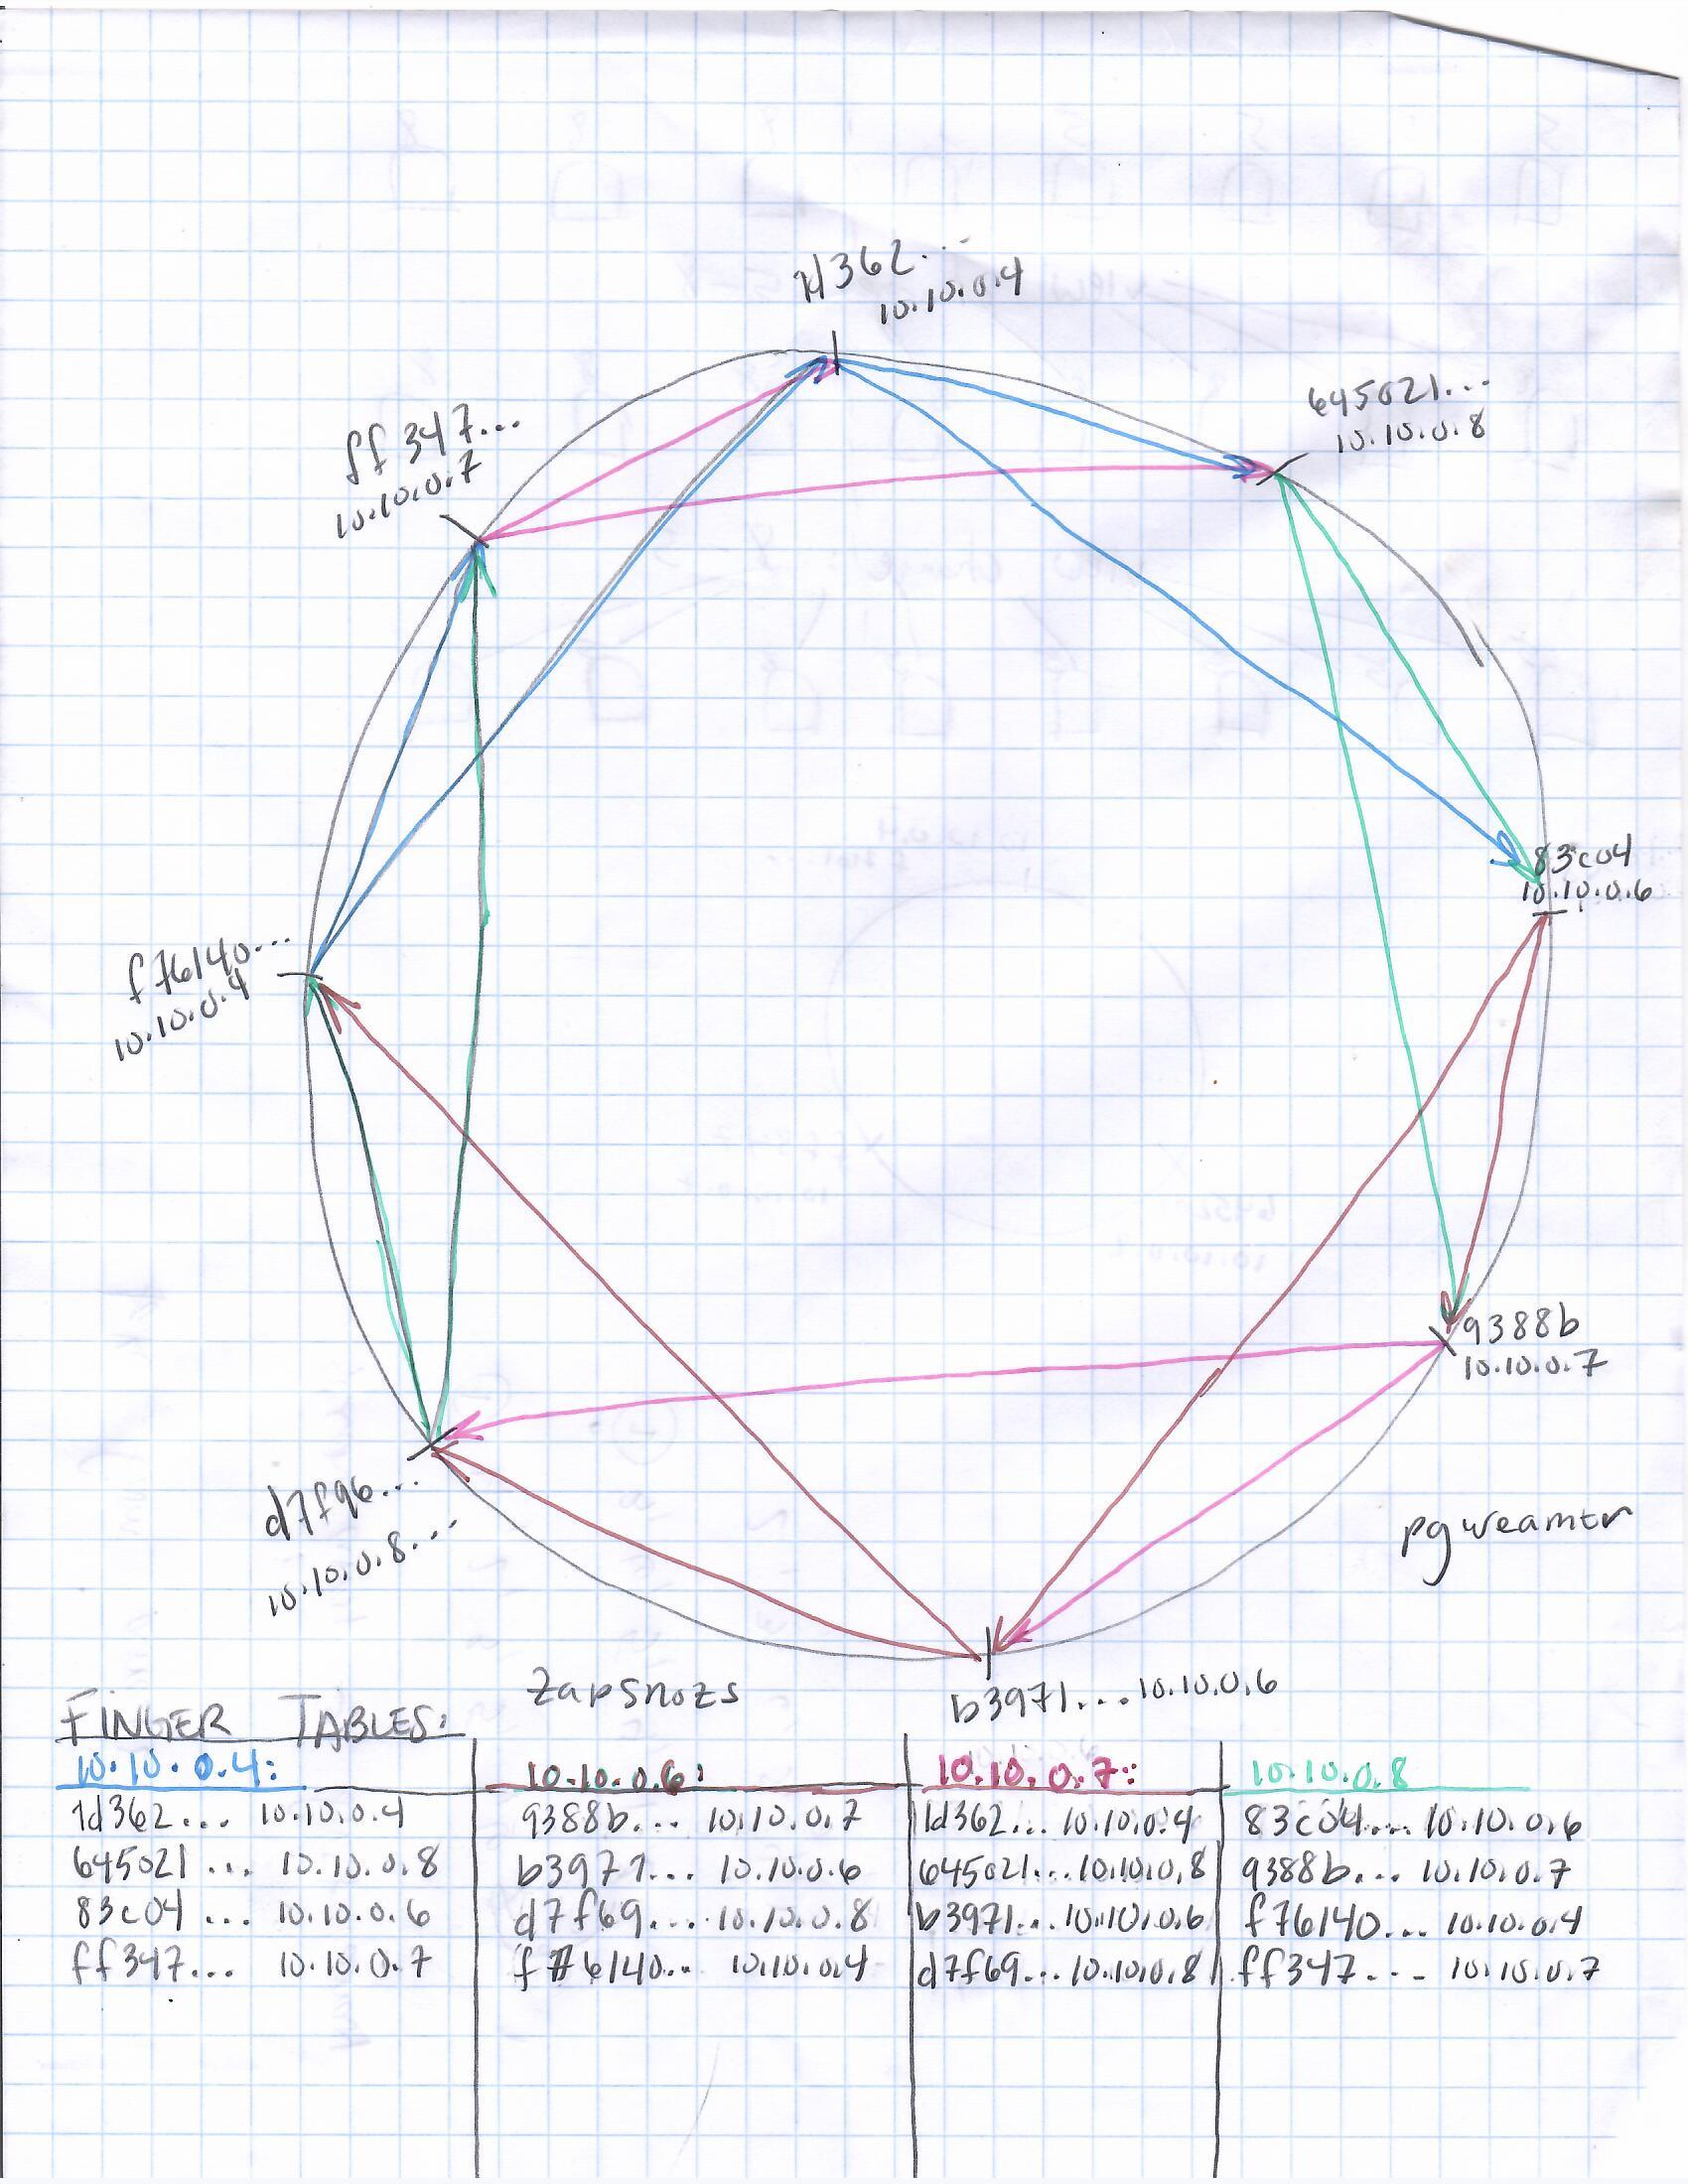 1d362...
10.10.0.4
645021...
10.10.0.8
ff347...
10.10.0.7
83c04
10.10.0.6
f76140...
10.10.0.4
9388b
10.10.0.7
d7f96...
10.10.0.8...
pgweamtr
zapsnozs
b3971... 10.10.0.6
FINGER TABLES:
10.10.0.4:
1d362... 10.10.0.4
645021... 10.10.0.8
83c04... 10.10.0.6
ff347... 10.10.0.7
10.10.0.6:
9388b... 10.10.0.7
b3971... 10.10.0.6
d7f69.... 10.10.0.8
f76140... 10.10.0.4
10.10.0.7:
1d362... 10.10.0.4
645021... 10.10.0.8
b3971... 10.10.0.6
d7f69... 10.10.0.8
10.10.0.8
83c04.... 10.10.0.6
9388b... 10.10.0.7
f76140... 10.10.0.4
ff347... 10.10.0.7